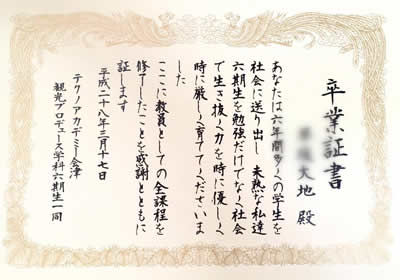 卒業証書
大地 殿
あなたは六年間多くの学生を
社会に送り出し 未熟な私達
六期生を勉強だけでなく社会
で生き抜く力を時に優しく
時に厳しく育ててくださいま
した
ここに教員としての全課程を
修了したことを感謝とともに
証します
平成二十八年三月十七日
テクノアカデミー会津
観光プロデュース学科六期生一同